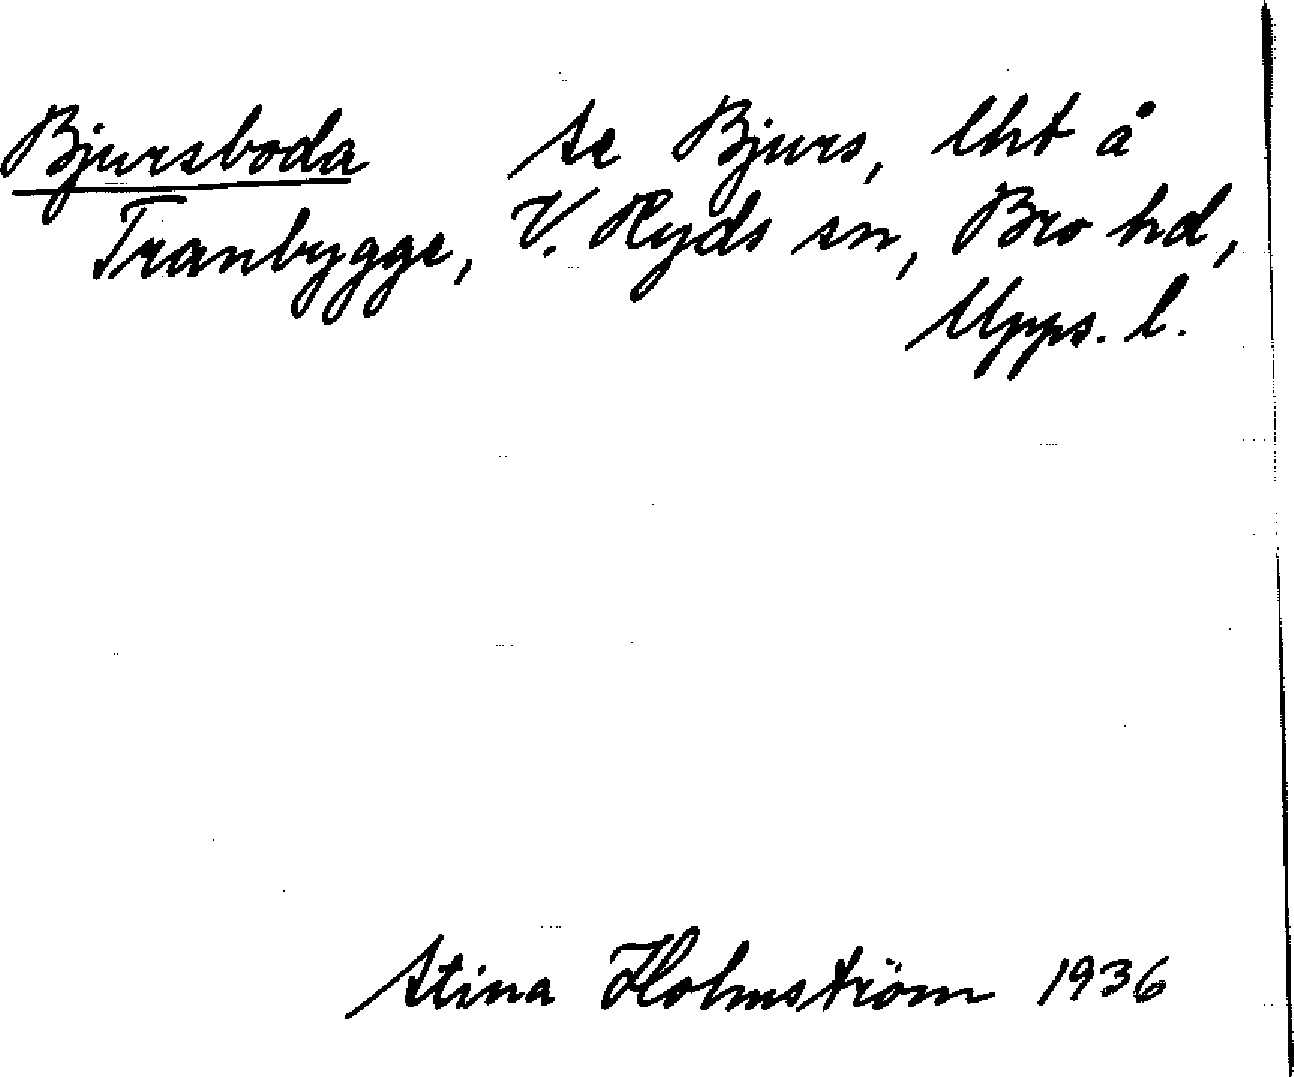 Bjursboda Se Bjurs, lht å
Tranbygge, V. Ryds sn, Bro hd,
Upps. l.
Stina Holmström 1936